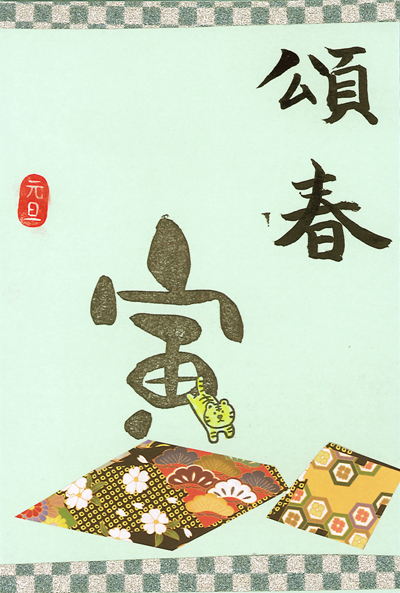 頌春
寅
元旦